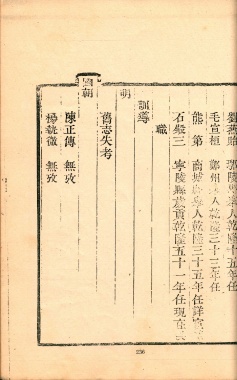 劉燕貽　鄢陵　人乾隆　十五年任
毛宣桓　鄭州　人乾隆三十三年任
熊　第　南城　人乾隆三十五年任詳宦
石殿三　寧陵縣歲貢乾隆五十一年任現在
職
訓導
明
舊志失考
國朝
陳正傳　無攷
楊毓徵　無攷
236